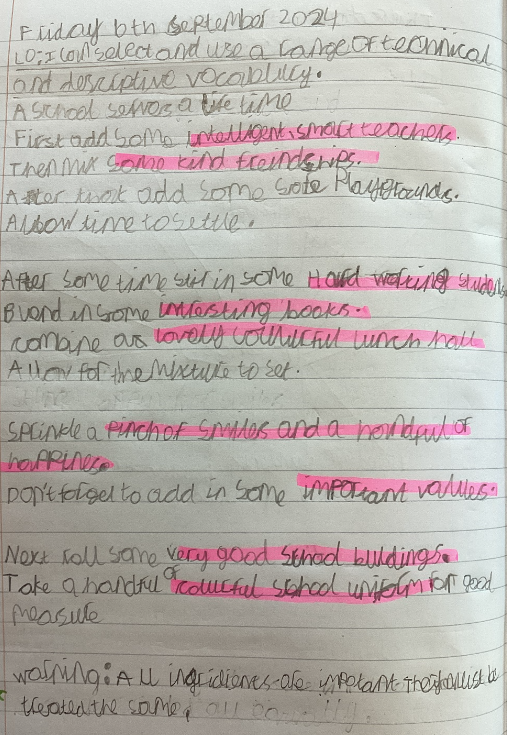 Friday 6th September 2024
LO: I can select and use a range of technical
and descriptive vocabulary.
A school serves a life time
First add some intelligent, smart teachers.
Then mix some kind freindships.
After that add some safe Playgrounds.
Allow time to settle.
After some time stir in some Hard working students
Blend in some intresting books.
combine a lovely colourful lunch hall
Allow for the mixture to set.
Sprinkle a pinch of smiles and a handful of
happines.
Don't forget to add in some important values.
Next roll some very good school buildings.
Take a handful of colourful school uniform for good
measure
warning: All ingridients are impotant They must be
treated the same,